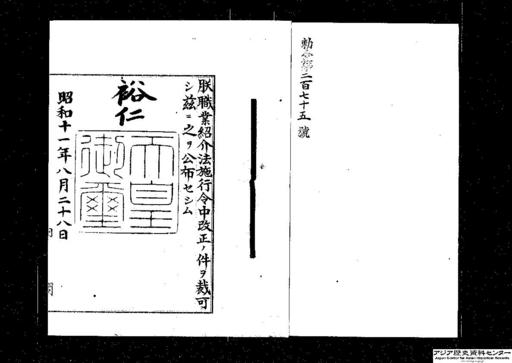 勅令第二百七十五號
朕職業紹介法施行令中改正ノ件ヲ裁可
シ茲ニ之ヲ公布セシム
裕仁
天皇
御璽
昭和十一年八月二十八日
内閣
アジア歴史資料センター
Japan Center for Asian Historical Records